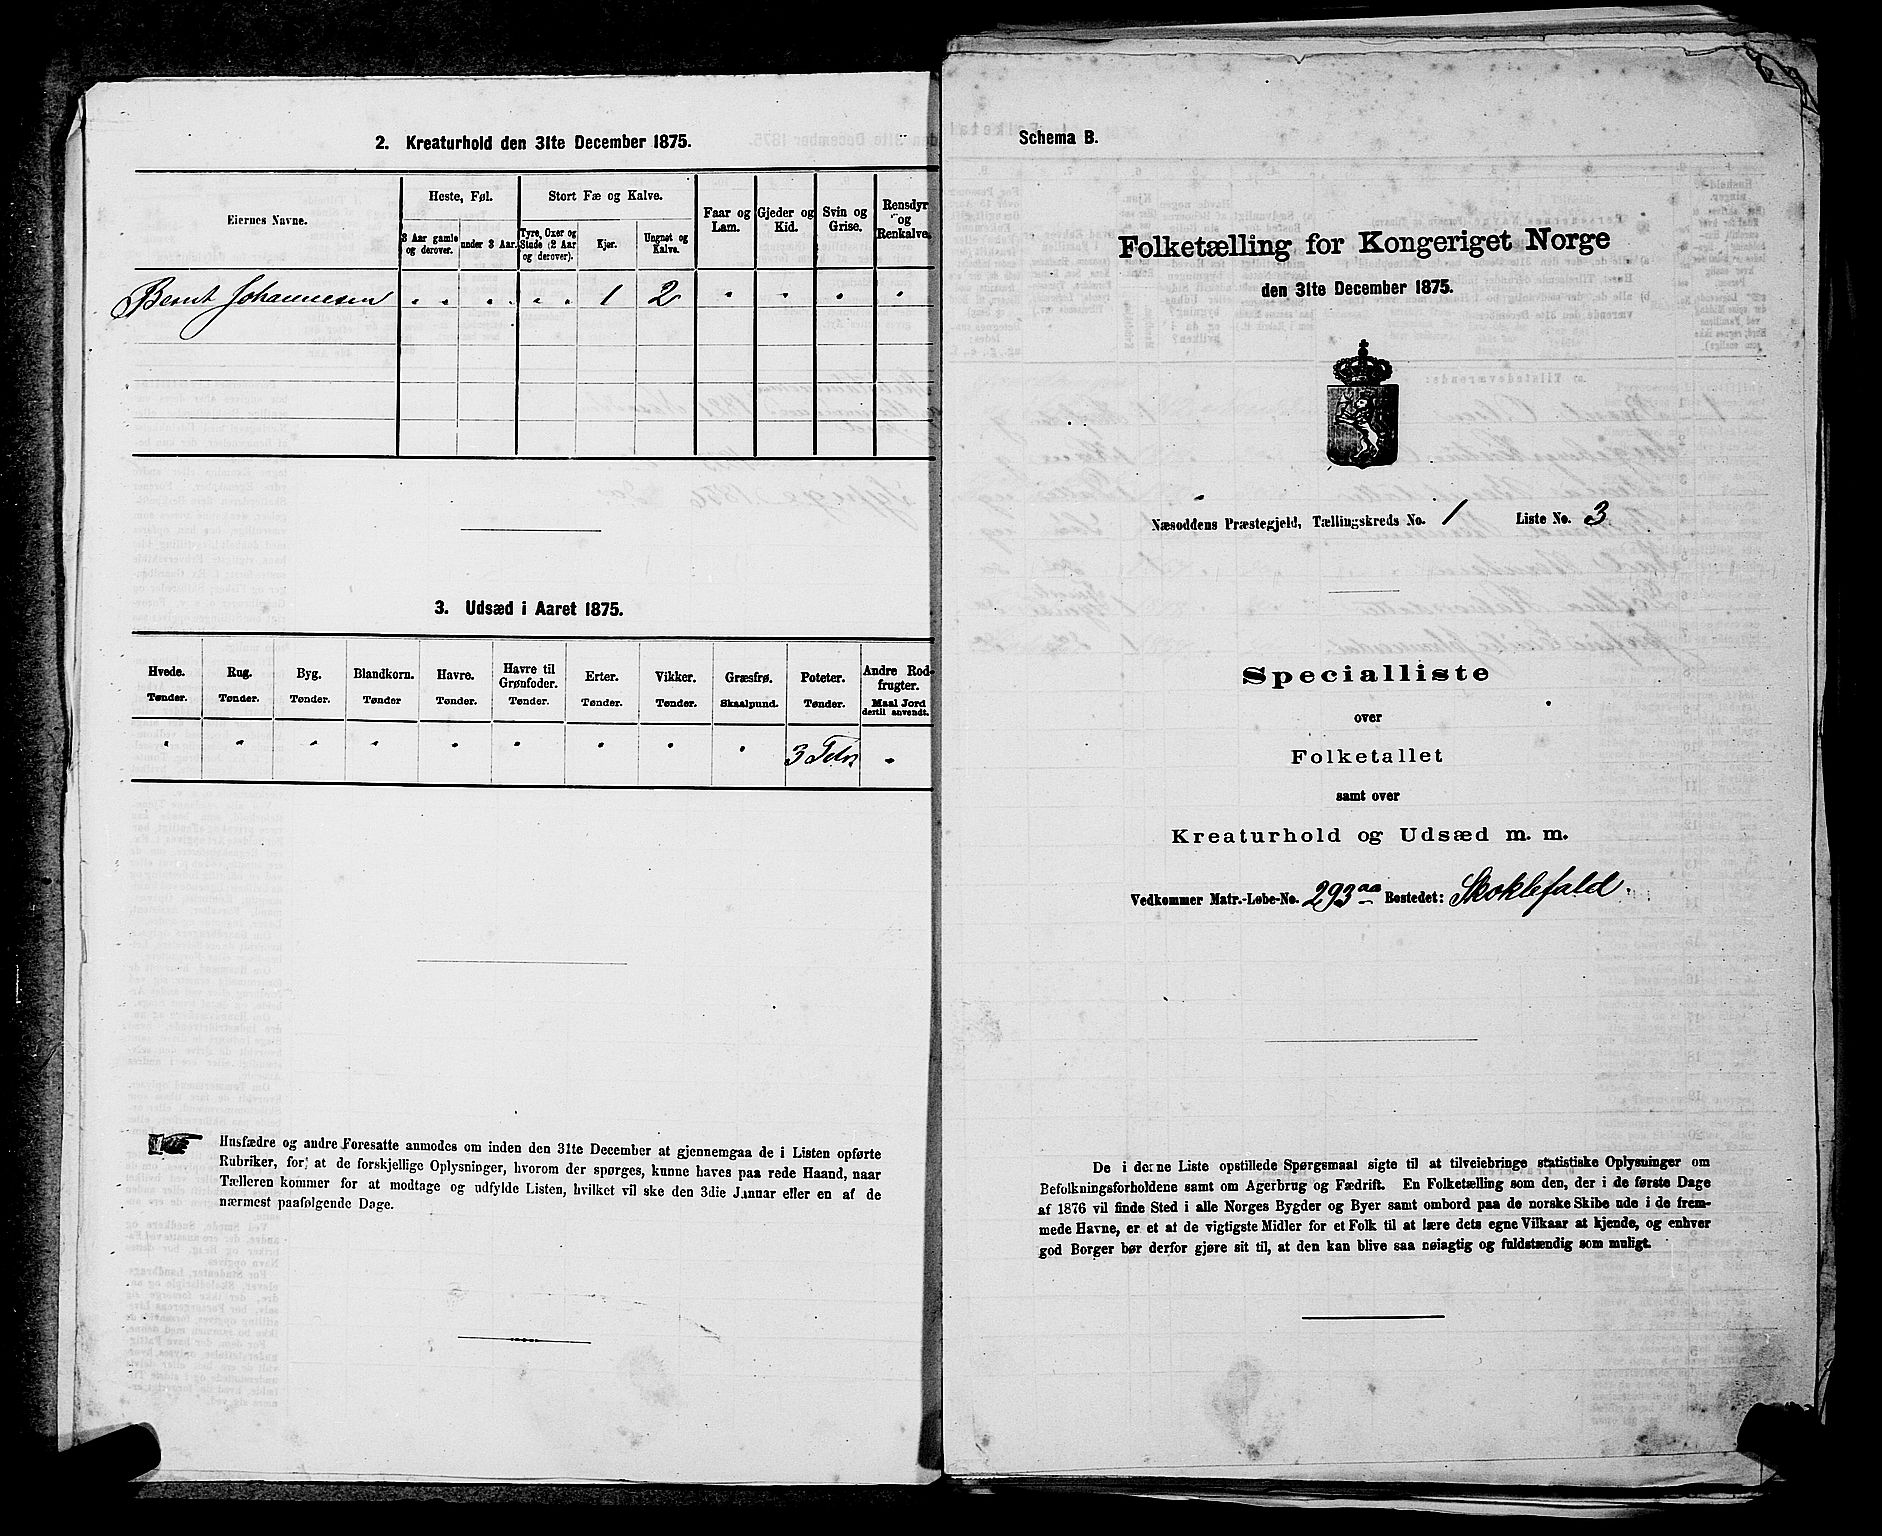 2. Kreaturhold den 31te December 1875.
Eiernes Navne.
Heste, Føl.
Stort Fæ og Kalve.
Faar og Lam.
Gjeder og Kid.
Svin og Grise.
Rensdyr og Renkalve.
3 Aar gamle og derover.
under 3 Aar.
Tyre, Oxer og Stude (2 Aar og derover).
Kjør.
Ungnøt og Kalve.
Bernt Johannesen " " " " " 1 2 " " " "
3. Udsæd i Aaret 1875.
Hvede. Rug. Byg. Blandkorn. Havre. Havre til Grønfoder. Erter. Vikker. Græsfrø. Poteter. Andre Rodfrugter.
Tønder. Tønder. Tønder. Tønder Tønder. Tønder. Tønder. Tønder. Skaalpund. Tønder. Maal Jord dertil anvendt.
" " " " " " " " " 3 Tdr "
Husfædre og andre Foresatte anmodes om inden den 31te December at gjennemgaa de i Listen opførte
Rubriker, for at de forskjellige Oplysninger, hvorom der spørges, kunne haves paa rede Haand, naar
Tælleren kommer for at modtage og udfylde Listen, hvilket vil ske den 3die Januar eller en af de
nærmest paafølgende Dage.
Schema B.
Folketælling for Kongeriget Norge
den 31te December 1875.
Næsoddens Præstegjeld, Tællingskreds No. 1 Liste No. 3
Specialliste
over
Folketallet
samt over
Kreaturhold og Udsæd m. m.
Vedkommer Matr.-Løbe-No. 293 aa Bostedet: Skoklefald.
De i denne Liste opstillede Spørgsmaal sigte til at tilveiebringe statistiske Oplysninger om
Befolkningsforholdene samt om Agerbrug og Fædrift. En Folketælling som den, der i de første Dage
af 1876 vil finde Sted i alle Norges Bygder og Byer samt ombord paa de norske Skibe ude i de frem-
mede Havne, er et af de vigtigste Midler for et Folk til at lære dets egne Vilkaar at kjende, og enhver
god Borger bør derfor gjøre sit til, at den kan blive saa nøiagtig og fuldstændig som muligt.